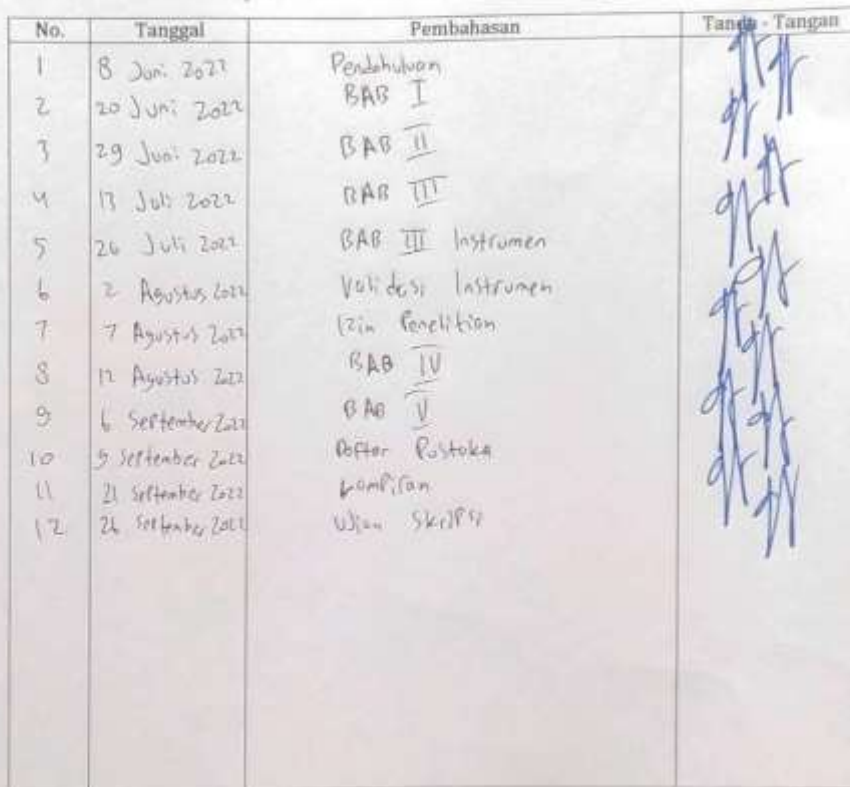 No. Tanggal Pembahasan Tanda - Tangan
1 8 Juni 2022 Pendahuluan
2 20 Juni 2022 BAB I
3 29 Juni 2022 BAB II
4 13 Juli 2022 BAB III
5 26 Juli 2022 BAB III Instrumen
6 2 Agustus 2022 Validasi Instrumen
7 7 Agustus 2022 Izin Penelitian
8 12 Agustus 2022 BAB IV
9 6 September 2022 BAB V
10 9 September 2022 Daftar Pustaka
11 21 September 2022 Lampiran
12 26 September 2022 Ujian Skripsi